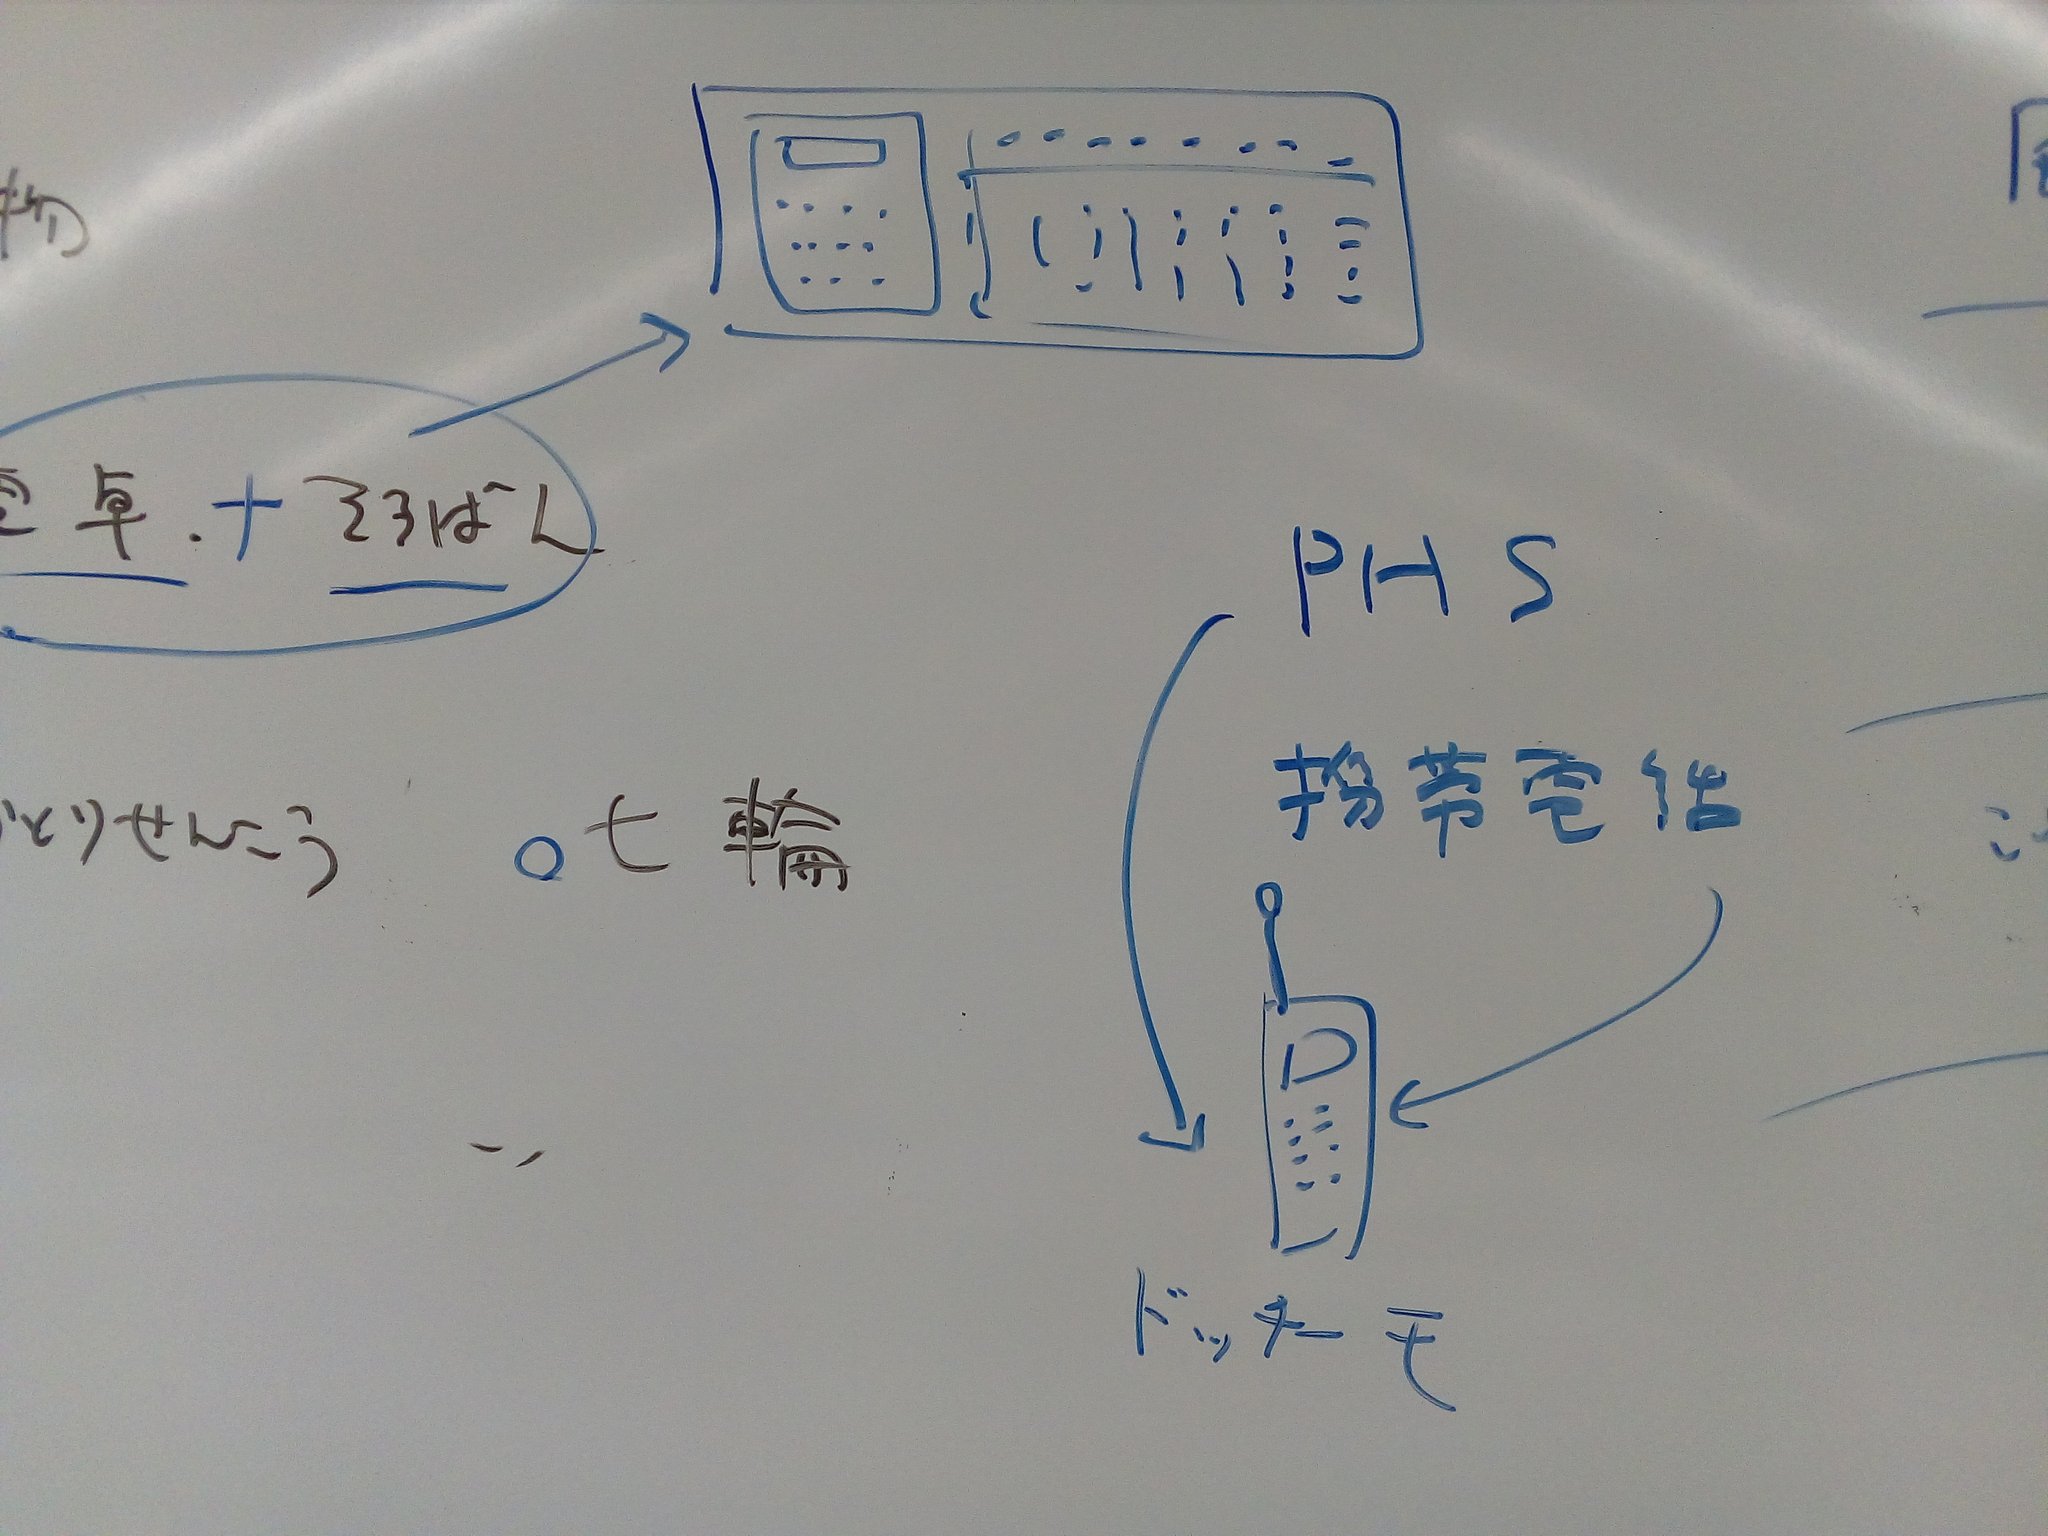 物
電卓.+そろばん
PHS
携帯電話
とりせんこう
○七輪
D
ドッチーモ